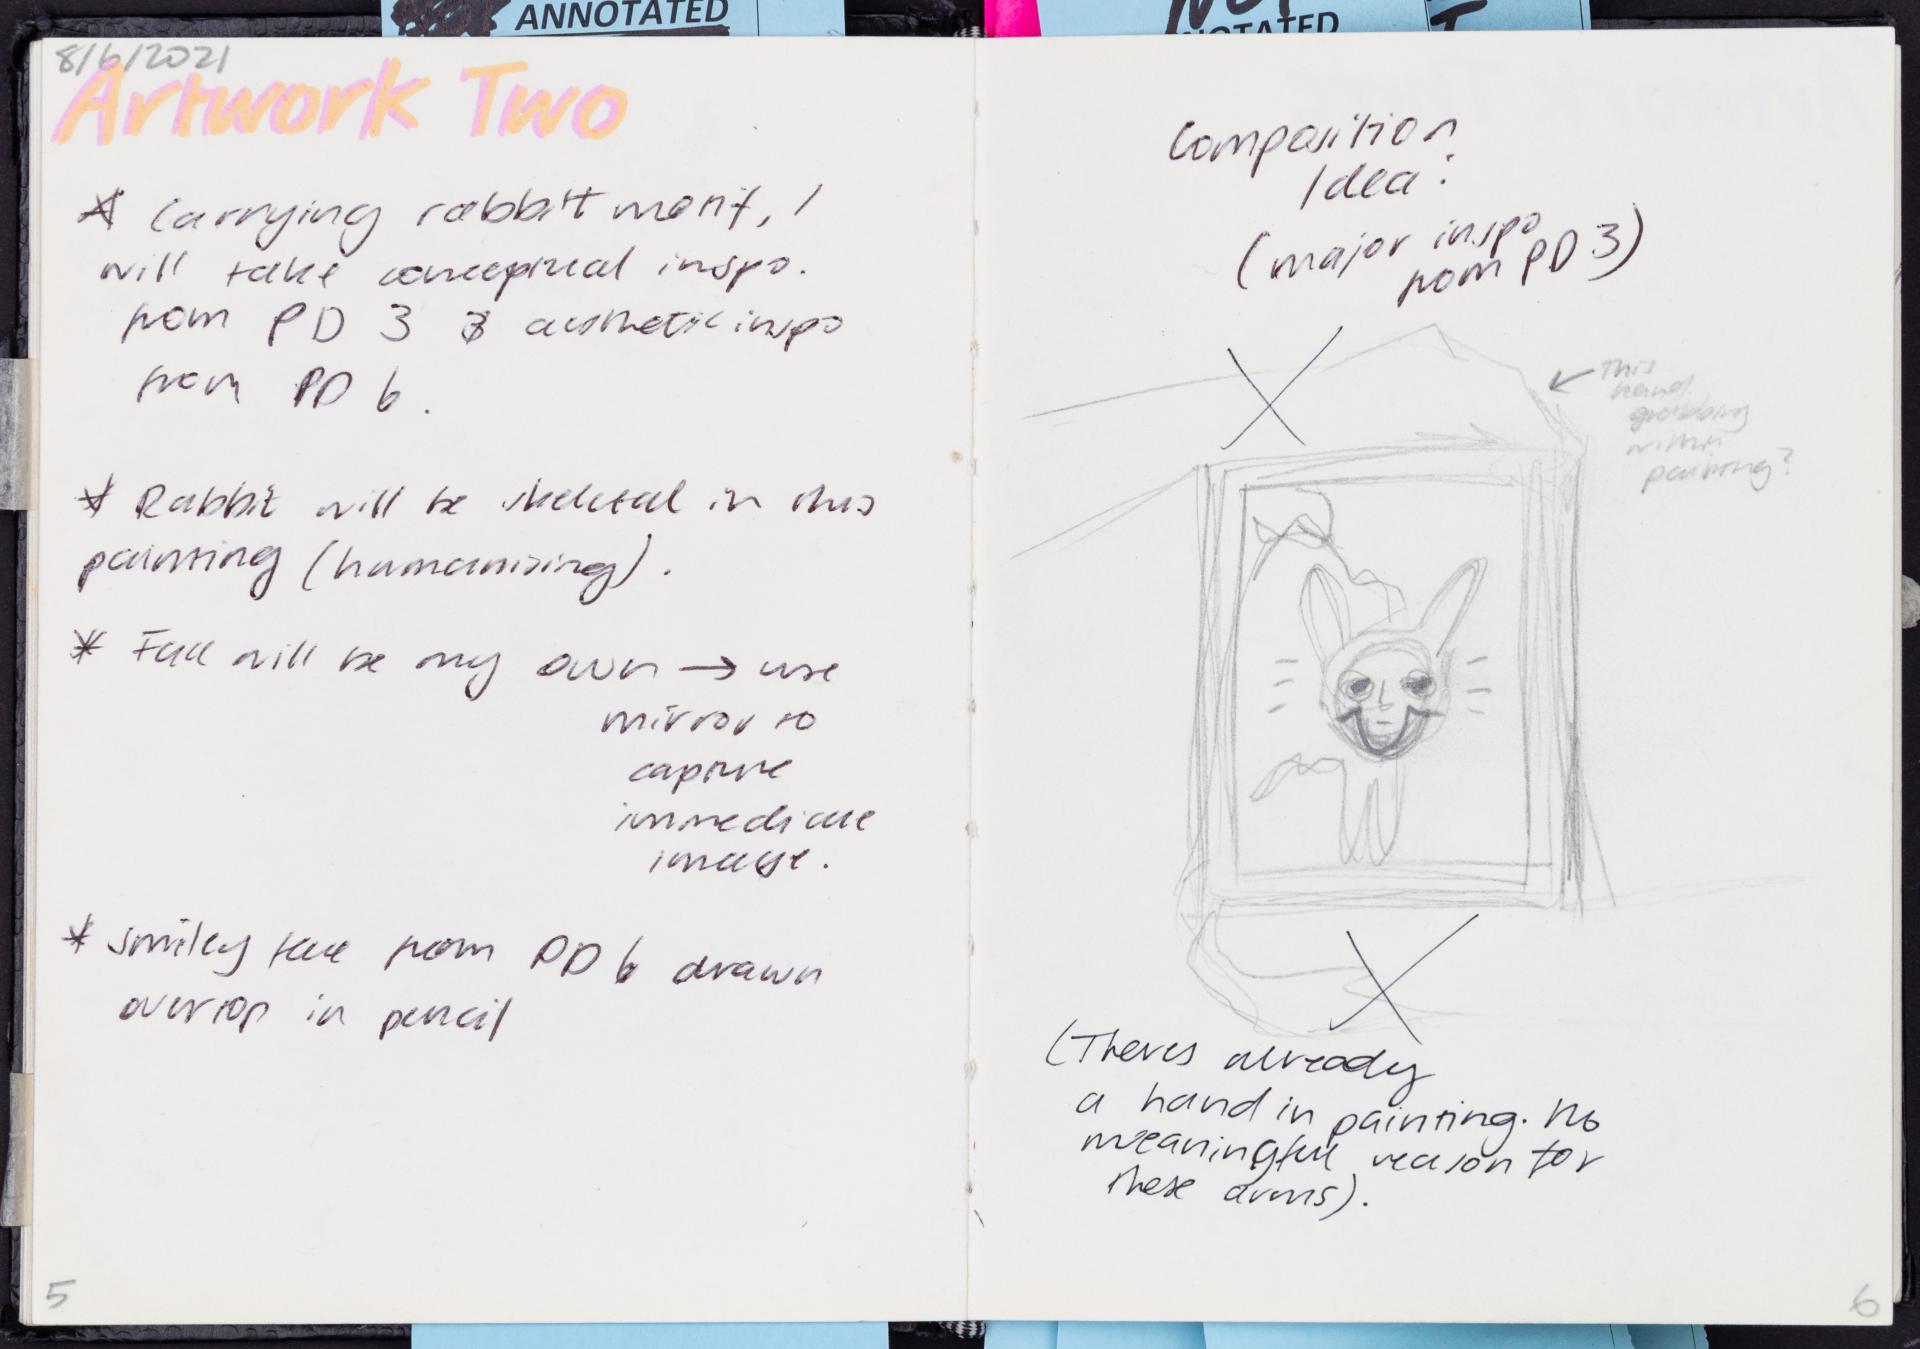 ANNOTATED
NOT
NOTATED
8/6/2021
Artwork Two
* Carrying rabbit motif, I
will take conceptual inspo.
from PD 3 & aesthetic inspo
from PD 6.
* Rabbit will be skeletal in this
painting (humanising).
* Face will be my own → use
mirror to
capture
immediate
image.
* smiley face from PD 6 drawn
overtop in pencil
5
Composition
Idea:
(major inspo
from PD 3)
This
hand
grabbing
within
painting?
(Theres already
a hand in painting. No
meaningful reason for
these arms).
6